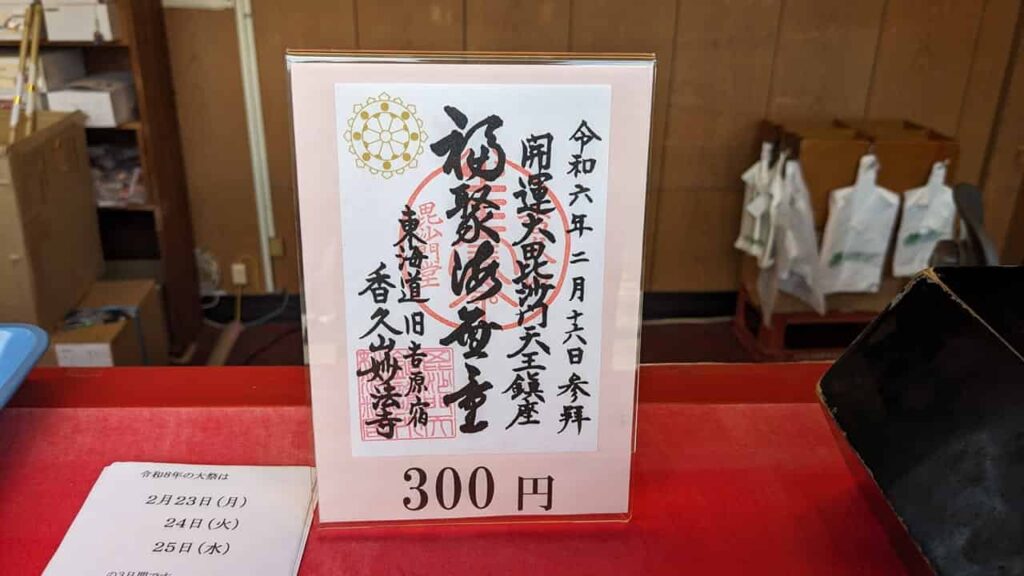 令和六年二月十六日参拜
開運大毘沙門天王鎮座
福聚海無量
毘沙門堂
東海道旧吉原宿
香久山妙法寺
300円
令和8年の大祭は
2月23日(月)
24日(火)
25日(水)
の3日間です